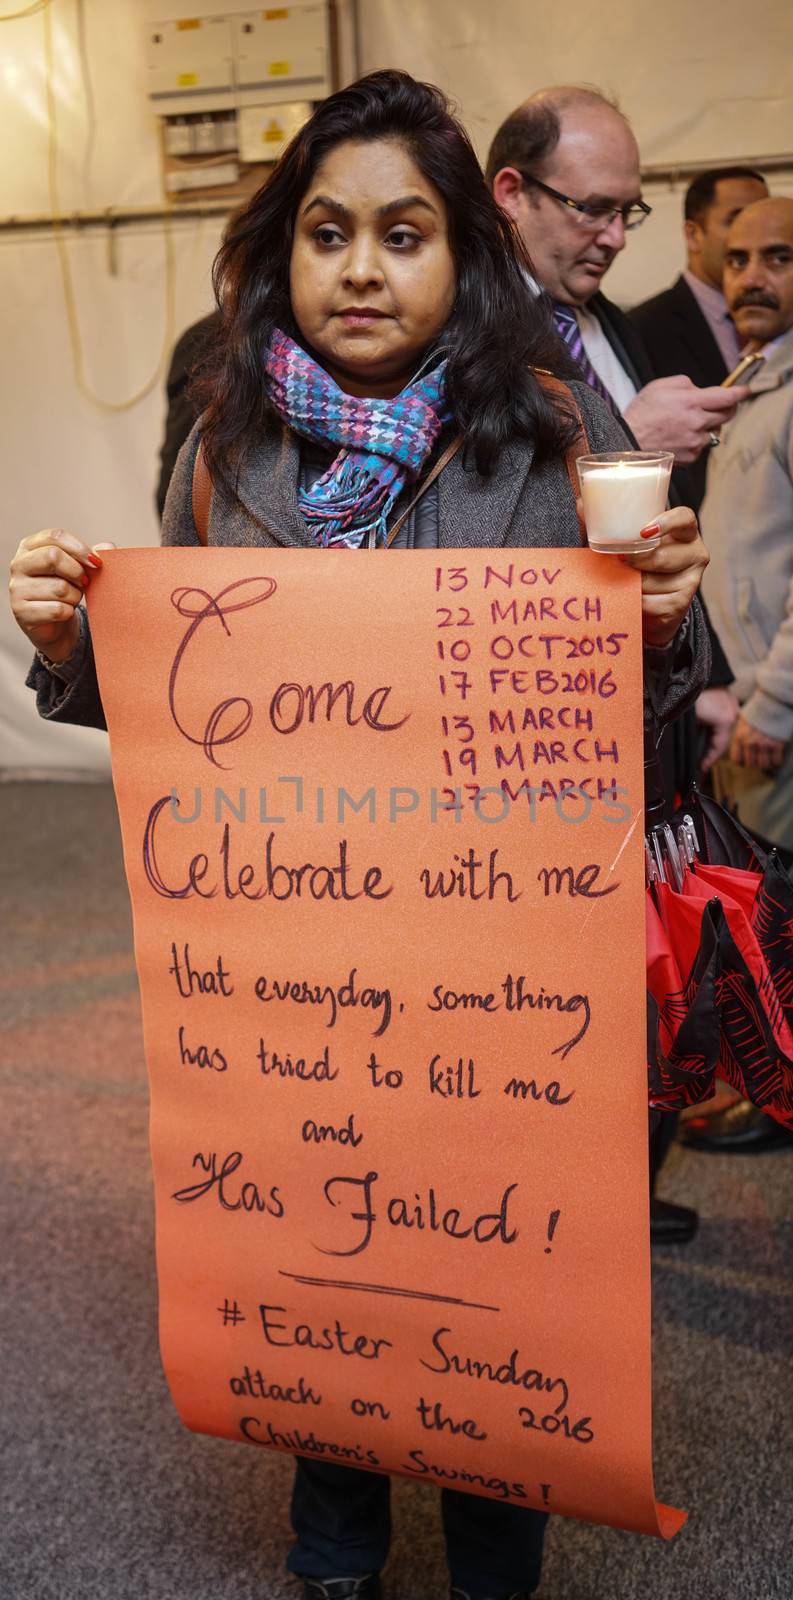 13 Nov
22 MARCH
10 OCT 2015
17 FEB 2016
13 MARCH
19 MARCH
27 MARCH
Come
Celebrate with me
that everyday, something
has tried to kill me
and
Has Failed!
# Easter Sunday
attack on the 2016
Children's Swings!
UNLIMPHOTOS